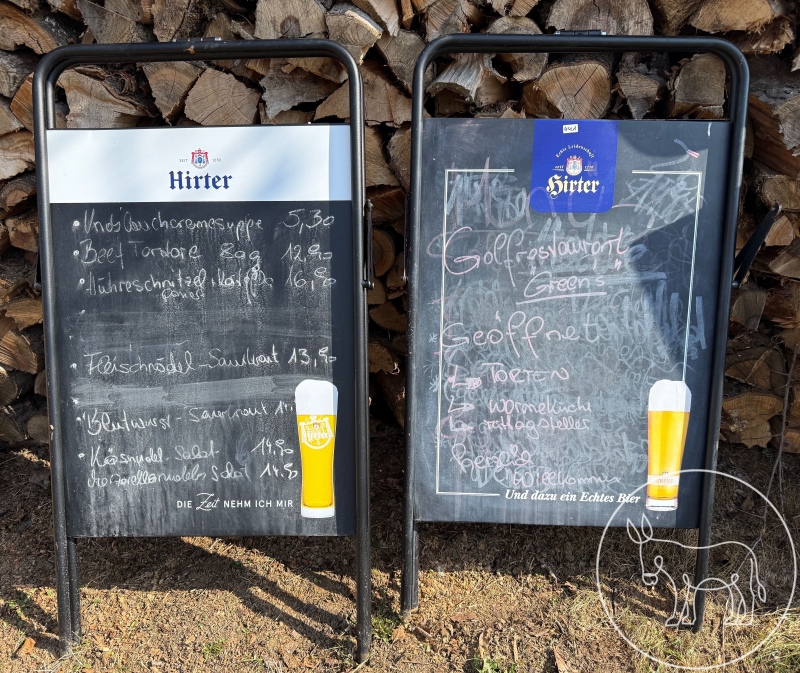 SEIT 1270
Hirter
Beef Tartare 80g 12,90
16,90
Fleischnödel - Sauerkraut 13,90
Blutwurst - Sauerkraut
Käsnudel - Salat 14,90
Salat 14,90
DIE Zeit NEHM ICH MIR
Hirter
Echte Leidenschaft
SEIT 1270
Hirter
Golfrestaurant
"Greens"
Geöffnet
TORTEN
warme Küche
Mittagsteller
Herzlich
Willkommen
Und dazu ein Echtes Bier